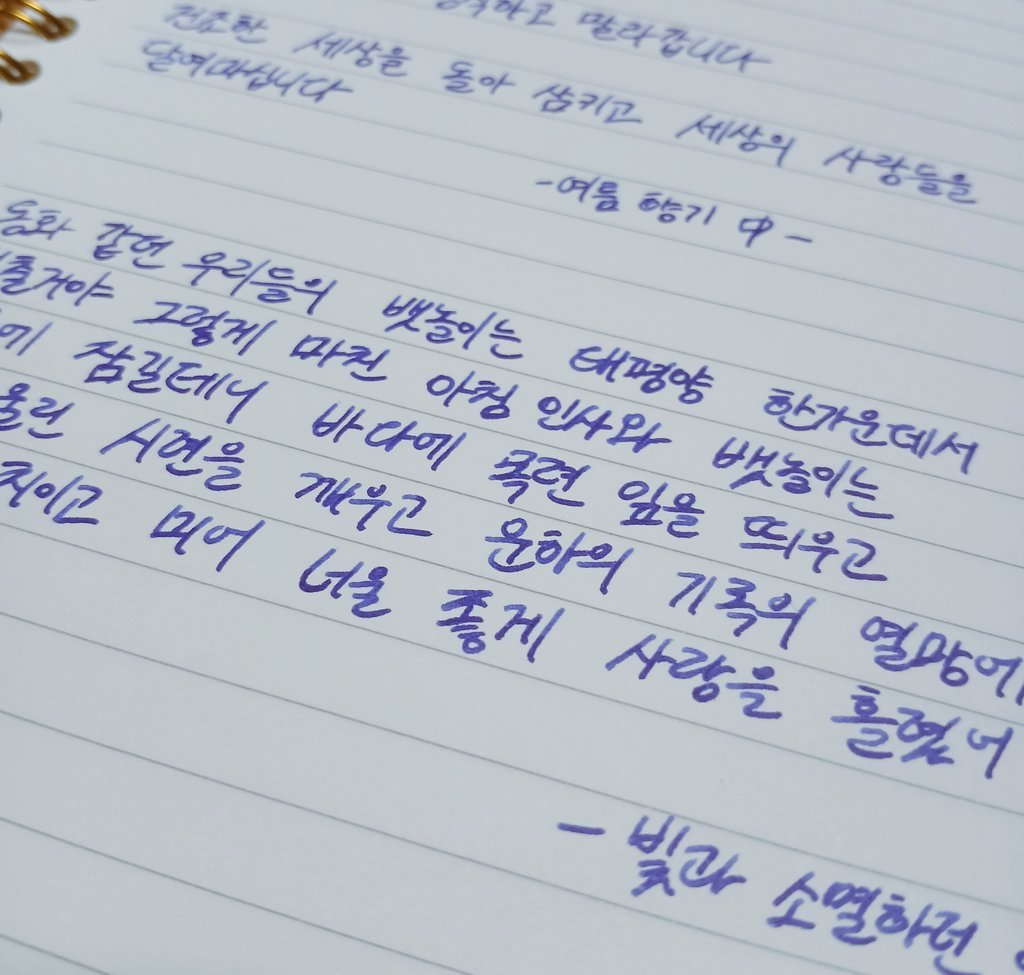 말라갑니다
건조한 세상을 돌아 삼키고 세상의 사랑들을
달여마십니다
-여름 향기 中-
동화 같던 우리들의 뱃놀이는 태평양 한가운데서
출거야 그렇게 마친 아침 인사와 뱃놀이는
에 잠길테니 바다에 목련 잎을 띄우고
올린 시편을 깨우고 운하의 기록의 열망에
직이고 미어 너울 좋게 사랑을 흘렸어
- 빛과 소멸하던